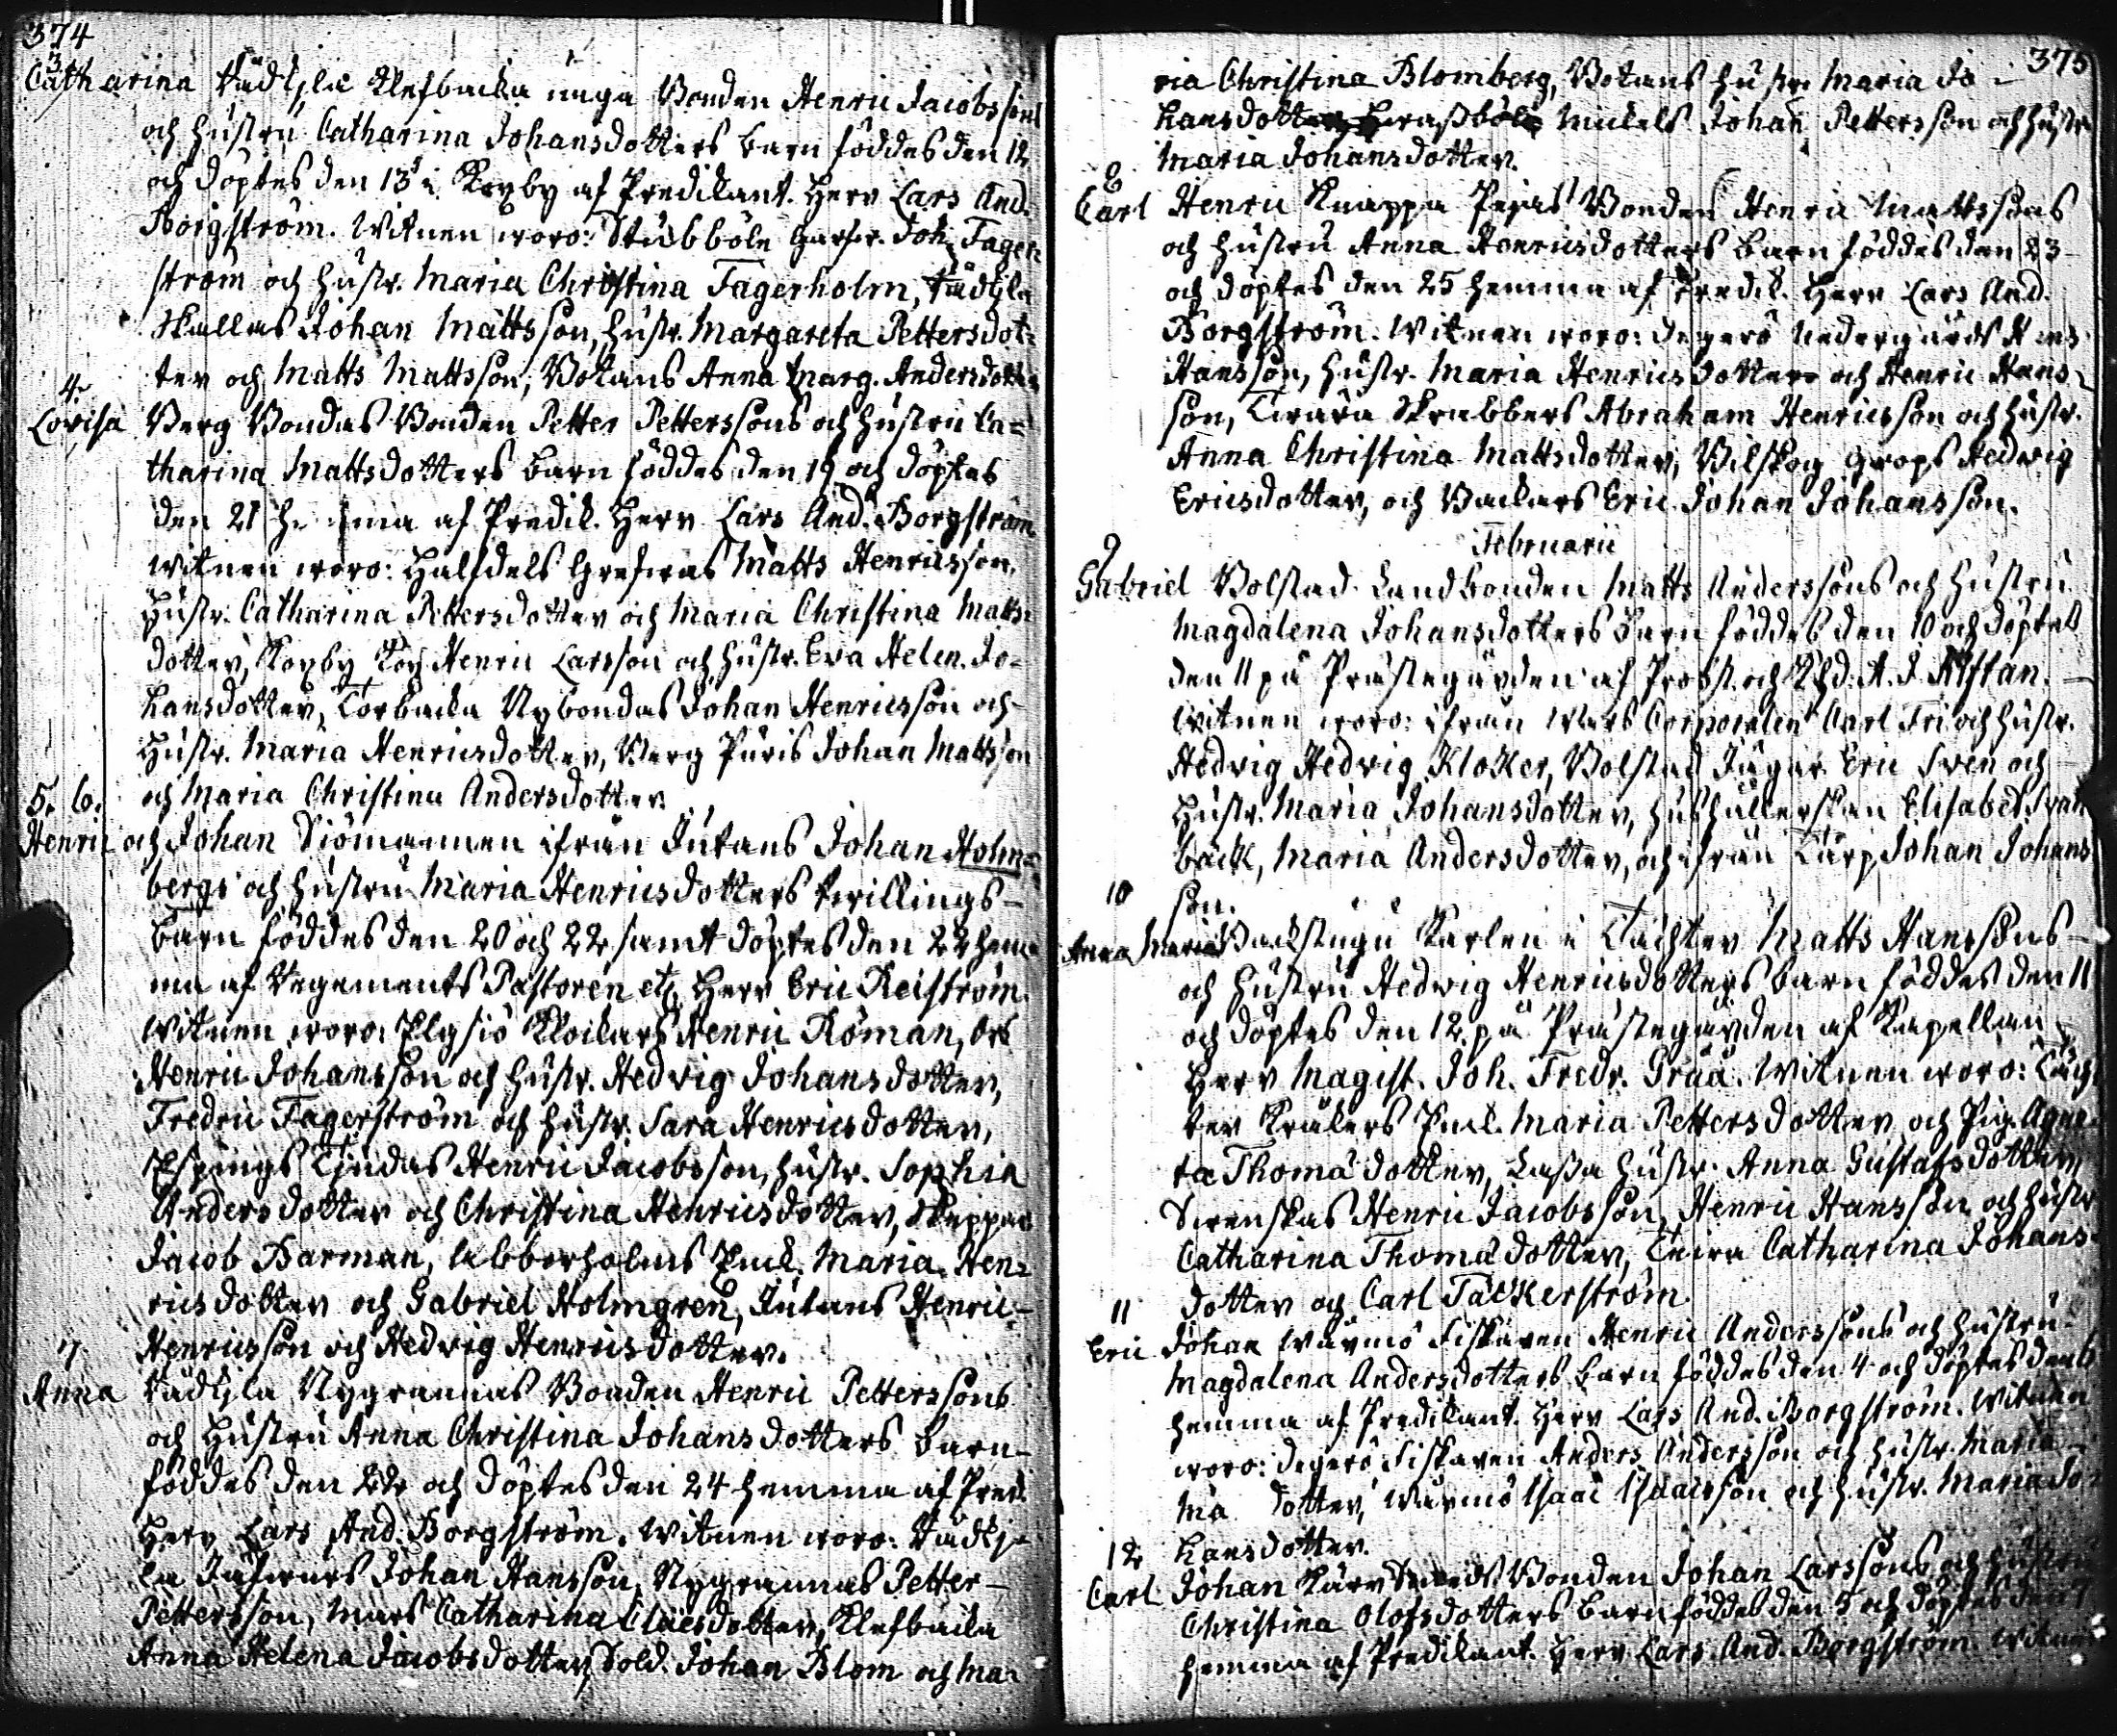 374
3.
Catharina Rådkjla Klefbacka unga Bonden Henric Jacobssons
och hustru Catharina Johansdotters barn föddes den 12
och döptes den 13 i Koxby af Predikant. Herr Lars And.
Borgström. Witnen woro: Stubböle Joh. Fager
ström och hustr. Maria Christina Fagerholm, Rådkjla
Skallas Johan Mattsson, hustr. Margareta Pettersdot=
ter och Matts Mattsson, Botans Anna Marg. Andersdotter
4.
Lovisa Berg Bondas Bonden Petter Petterssons och hustru Ca=
tharina Mattsdotters barn föddes den 19 och döptes
den 21 hemma af Predik. Herr Lars And. Borgström
witnen woro: Halfdels Grefwas Matts Henricsson,
hustr. Catharina Pettersdotter och Maria Christina Matts=
dotter, Koxby Kox Henric Larsson och hustr. Eva Helen. Jo=
hansdotter, Torbacka Nybondas Johan Henricsson och
hustr. Maria Henricsdotter, Berg Puris Johan Mattsson
och Maria Christina Andersdotter.
5. 6.
Henric och Johan Siömannen ifrån Jutans Johan Holm=
bergs och hustru Maria Henricsdotters twillings-
barn föddes den 20 och 22 samt döptes den 22 hem=
ma af Regements Pastoren etc. Herr Eric Reiström.
witnen woro: Elgsiö Klockars Henric Röman, Ors
Henric Johansson och hustr. Hedvig Johansdotter,
Fredric Fagerström och hustr. Sara Henricsdotter,
Espings Tjudas Henric Jacobsson, hustr. Sophia
Andersdotter och Christina Henricsdotter, Skeppar
Jacob Barman, Abborholms Enck. Maria Hen=
ricsdotter och Gabriel Holmgren, Jutans Henric
Henricsson och Hedvig Henricsdotter.
7
Anna Rådkjla Nygrannas Bonden Henric Petterssons
och hustru Anna Christina Johansdotters barn
föddes den 22 och döptes den 24 hemma af Predi.
Herr Lars And. Borgström. Witnen woro: Rådkj=
la Johan Hansson, Nygrannas Petter
Pettersson, Mars Catharina Claesdotter, Klefbacka
Anna Helena Jacobsdotter, Sold. Johan Blom och Ma=
375
ria Christina Blomberg, Botans hustr. Maria Jo=
hansdotter, Mickels Johan Pettersson och hustr.
Maria Johansdotter.
8
Carl Henric Knappa Pejas Bonden Henric Mattssons
och hustru Anna Henricsdotters barn föddes den 23
och döptes den 25 hemma af Predik. Herr Lars And.
Borgström. Witnen woro: Degerö Nedergårds Hans
Hansson, hustr. Maria Henricsdotter och Henric Hans=
son, Skrabbers Abraham Henricsson och hustr.
Anna Christina Mattsdotter, Bilskog Grops Hedwig
Ericsdotter, och Backars Eric Johan Johansson.
Februarii
9
Gabriel Bolstad Landbonden Matts Anderssons och hustru
Magdalena Johansdotters barn föddes den 10 och döptes
den 11 på Prästegården af Probst. och Khd. A. J. Alftan.
Witnen woro: ifrån Wars Corporalen Carl Fri och hustr.
Hedvig Hedvig Klocker, Bolstad Jägar Eric Sven och
hustr. Maria Johansdotter, hushållerskan Elisabet Svart
bäck, Maria Andersdotter, och ifrån Kårp Johan Johans
son.
10
Anna Maria Backstugu Karlen i Tächter Matts Hanssons
och hustru Hedwig Henricsdotters barn föddes den 11
och döptes den 12 på Prästegården af Kapellan
Herr Magist. Joh. Fredr. Gråå. Witnen woro: Täch
ter Krakers Enck. Maria Pettersdotter och Pig. Agne
ta Thomædotter, Lassa hustr. Anna Gustafsdotter,
Svenskas Henric Jacobsson, Henric Hansson och hustr
Catharina Thomædotter, Teira Catharina Johans
dotter och Carl Täckerström.
11
Eric Johan Wärmö Fiskaren Henric Anderssons och hustru
Magdalena Andersdotters barn föddes den 4 och döptes den 6
hemma af Predikant. Herr Lars And. Borgström. Witnen
woro: Degerö Fiskaren Anders Andersson och hustr. Maria
Ma dotter, Wärmö Isaac Isaacsson och hustr. Maria Jo=
hansdotter.
12
Carl Johan Bonden Johan Larssons och hustru
Christina Olofsdotters barn föddes den 5 och döptes den 7
hemma af Predikant. Herr Lars And. Borgström. Witnen